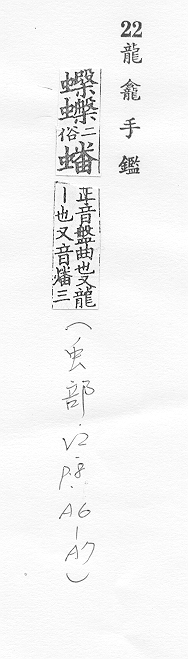 22 龍龕手鑑
二俗
蟠
正音盤曲也又龍
丨也又音燔三
(虫部.V2.P.8.A6-A7)